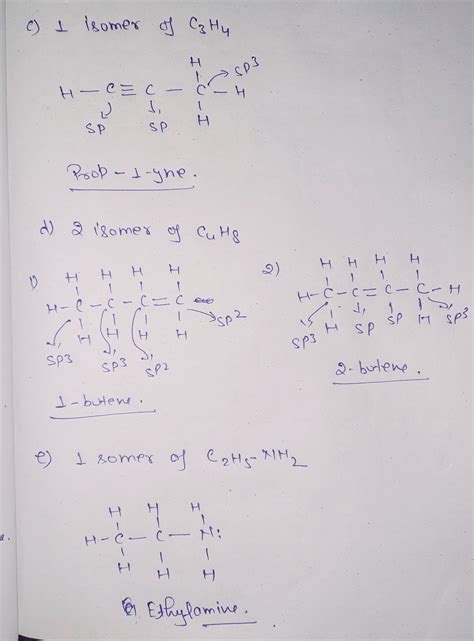 c) 1 isomer of C3H4
H
SP3
H – C ≡ C – C – H
H
SP SP
Prop – 1 – yne.
d) 2 isomer of C4H8
1)
H H H H
H – C – C – C = C
H H H H
SP3 SP3 SP2 SP2
1 – butene.
2)
H H H H
H – C – C = C – C – H
H H
SP3 SP SP SP3
2 – butene.
e) 1 somer of C2H5 – NH2
H H H
H – C – C – N:
H H H
Ethylamine.